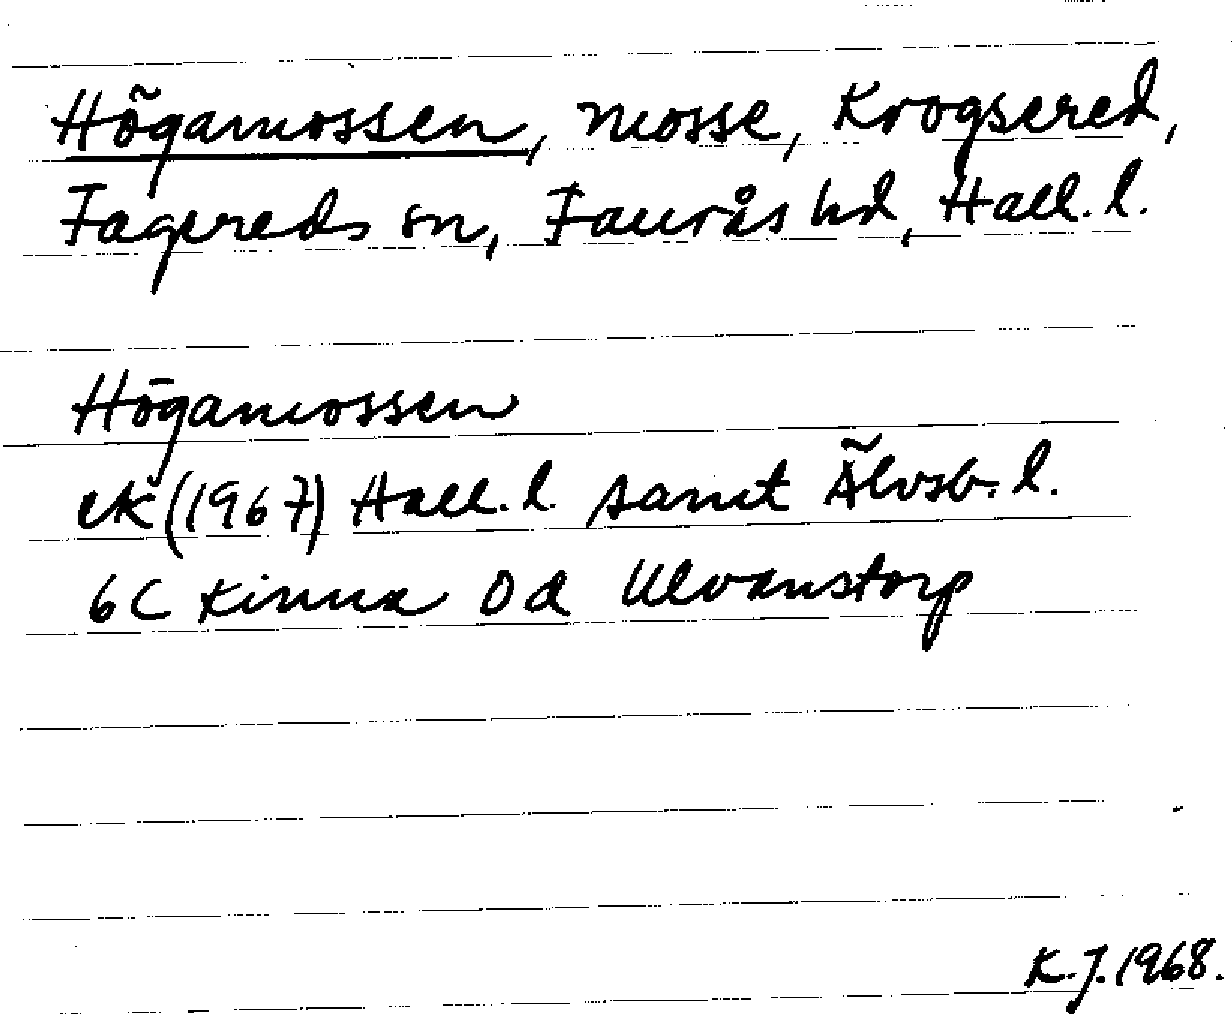 Högamossen, mosse, Krogsered,
Fagereds sn, Faurås hd, Hall. l.
Högamossen
ek (1967) Hall. l. samt Älvsb. l.
6C Kinna 0d Ulvanstorp
K.J. 1968.